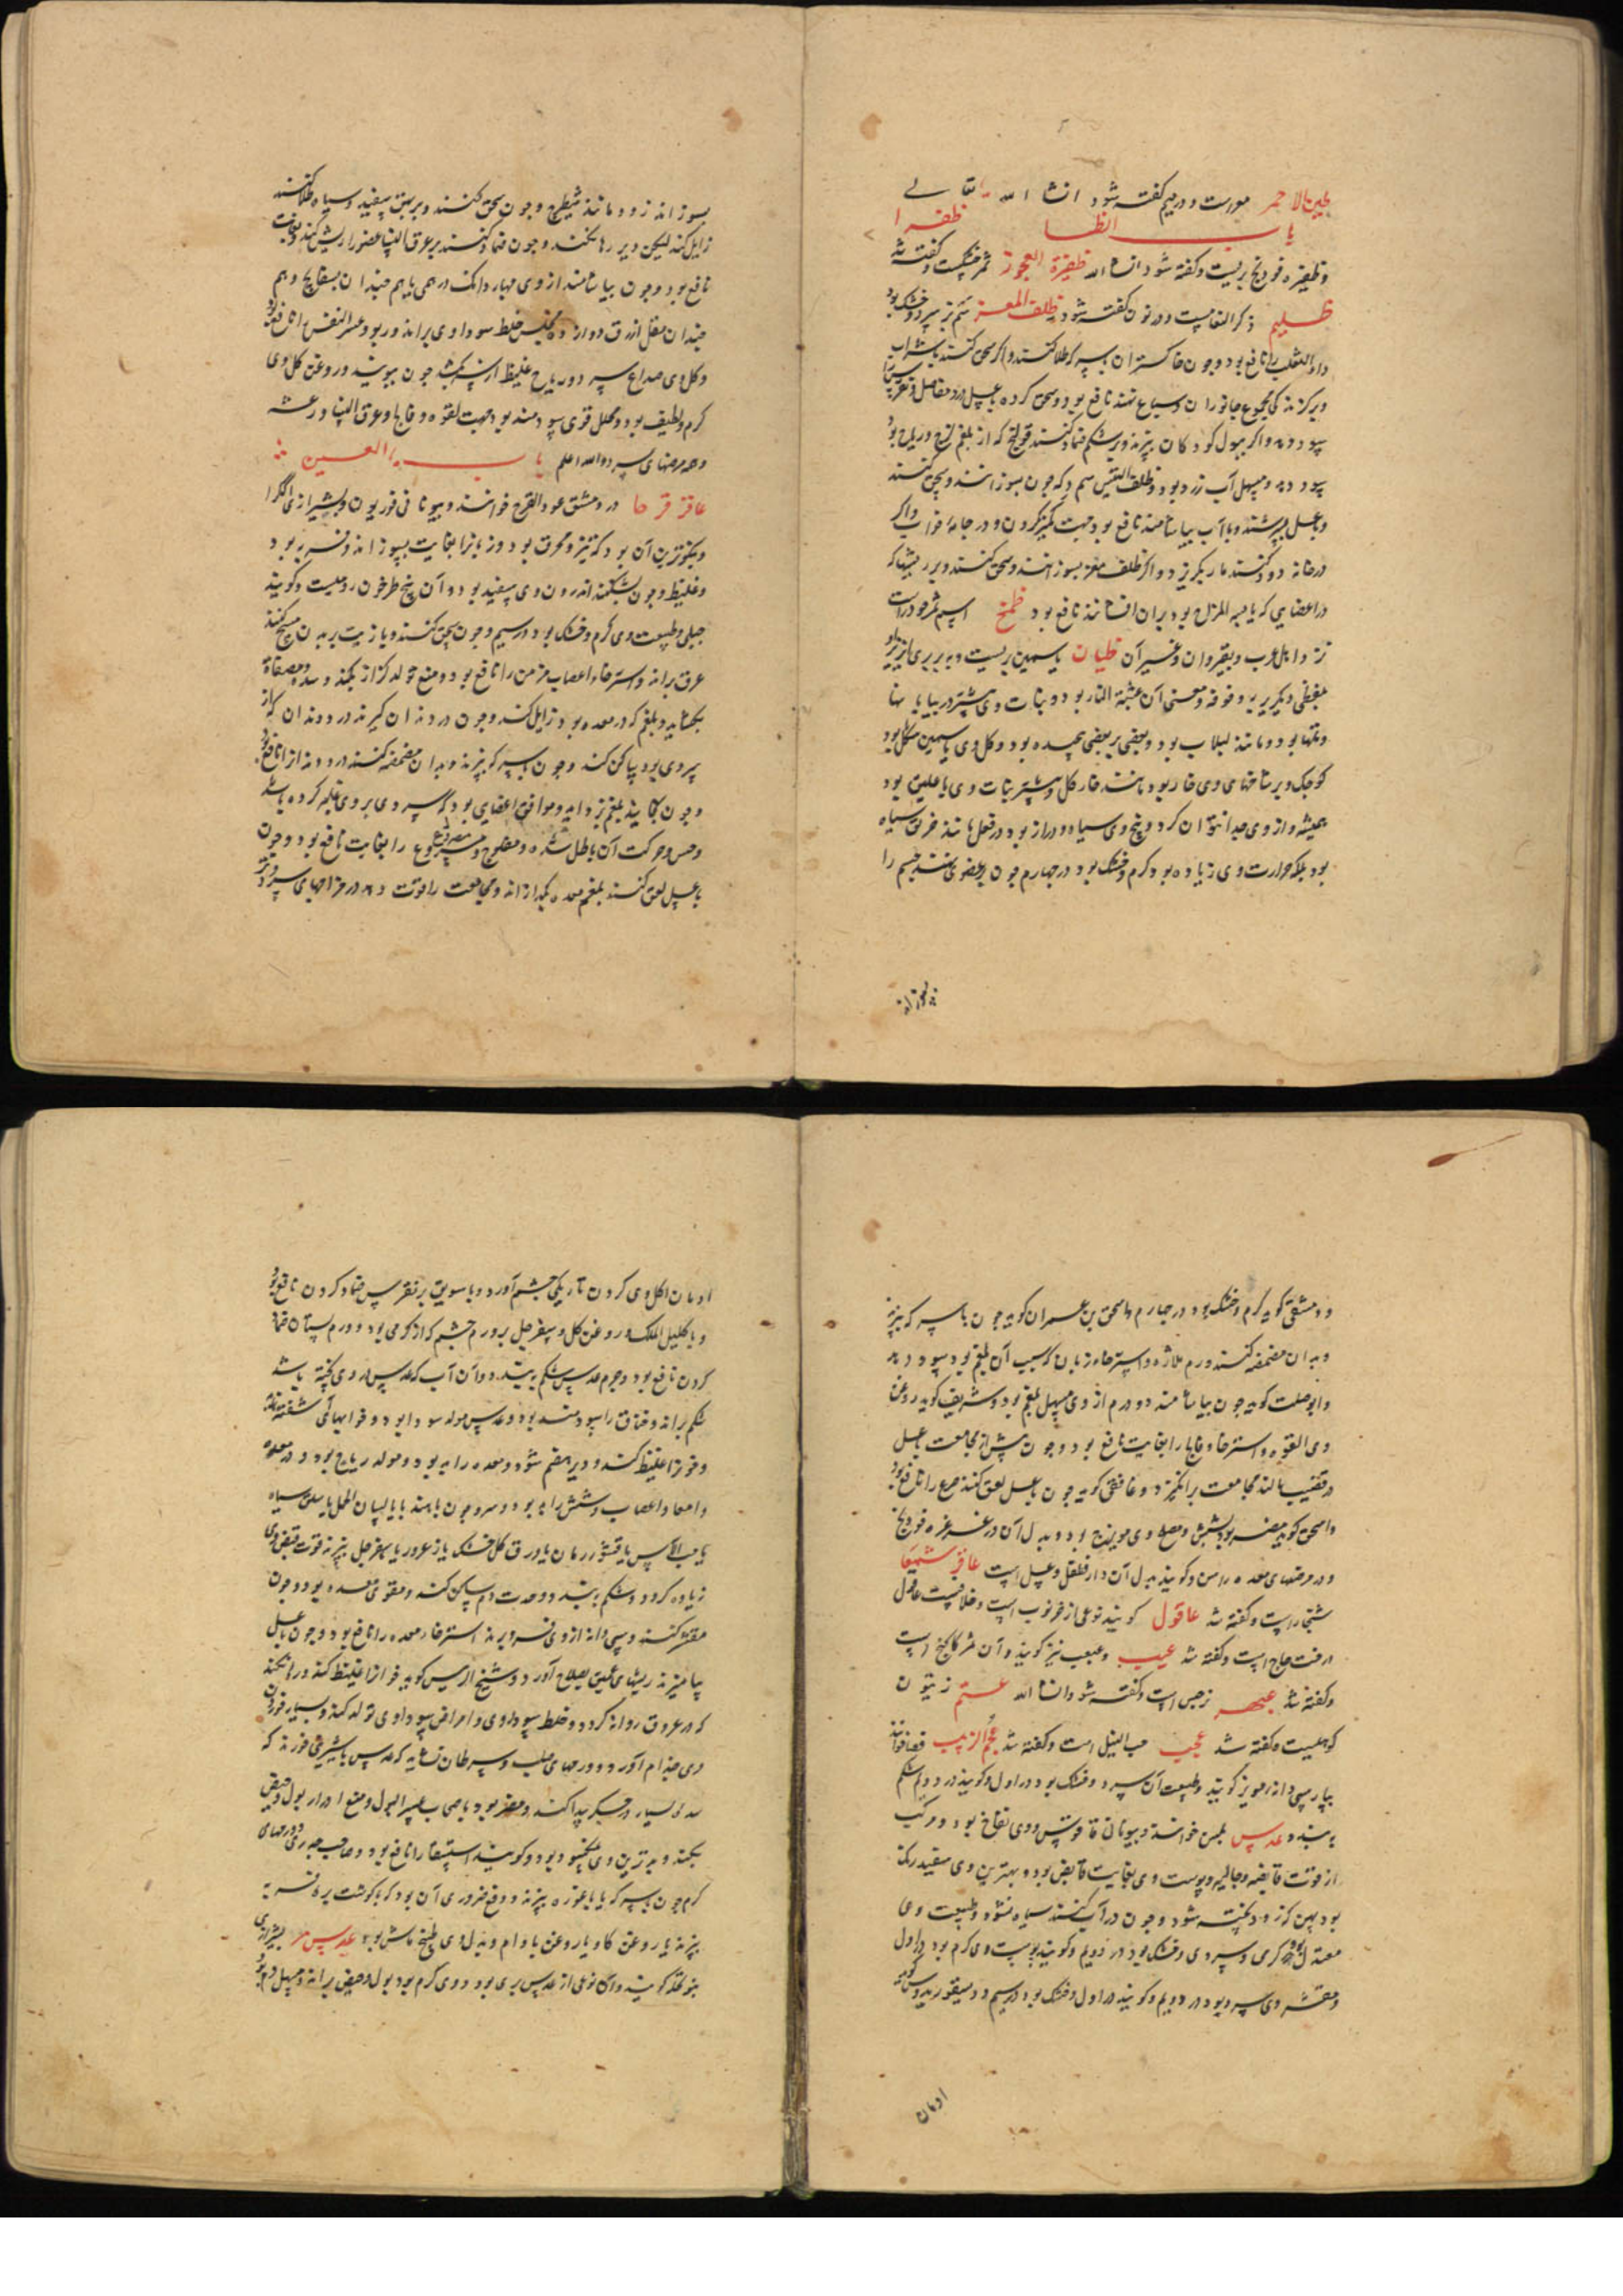 طین الاحمر مورست و در میم گفته شود انشا الله تعالی
باب الظا ظفرا
و ظفیره فودنج بریست و گفته شود انشاالله ظفیرة العجوز ثمر خسکست و گفته شد
ظلیم ذکر النعامست و در نون گفته شود ظلف المعز سم بز سرد و خشک بود
داء الثعلب را نافع بود و چون خاکستر آن بسرکه طلا کنند و اگر سحق کنند بشراب
سود دهد و اگر ببول کودکان بپزند و بر شکم ضماد کنند قولنج که از بلغم لزج و ریاح بود
سود دهد و مسهل آب زرد بود و ظلف التیس سم چون بسوزانند و سحق کنند
و بعسل بسرشند و با آب بیاشامند نافع بود جهت کمیز کردن در جامه خواب و اگر
در خانه دود کنند مار بگریزد و اگر ظلف معز بسوزانند و سحق کنند و بر ریشها که
در اعضایی که یابس المزاج بود بران افشانند نافع بود ظمخ اسم ثمر خودراست
نزد اهل عرب و بقیروان و غیر آن ظیان یاسمین بریست و به بربری
و معنی آن عشبة النار بود و نبات وی بیشتر در بیابانها
و تلها بود و مانند لبلاب بود و بعضی بر بعضی پیچیده بود و کل وی یاسمین شکل بود
کوچک و بر شاخهای وی خار بود مانند خار کل و بیشتر نبات وی با علیق بود
همیشه و از وی جدا نتوان کرد و بیخ وی سیاه و دراز بود و در فعل مانند خربق سیاه
بود بلکه حرارت وی زیاده بود گرم و خشک بود در چهارم چون بر عضوی نهند جسم را
بسوزاند
بسوزاند زود مانند شیطرج و چون سحق کنند و بر بهق سفید و سیاه طلا کنند
زایل کند لیکن دیر رها نکنند و چون ضماد کنند بر عرق النسا عضو را ریش کند و بغایت
نافع بود و چون بیاشامند از وی چهار دانک درهمی باهم چندان بسفایج و هم
چندان مقل ازرق دوازده مجلس خلط سوداوی براند و ربو و عسر النفس را نافع بود
و کل وی صداع سرد و ریاح غلیظ از سر بکشد چون ببویند و روغن کل وی
گرم و لطیف بود و محلل قوی سودمند بود جهت لقوه و فالج و عرق النسا و رعشه
و همه مرضهای سرد و الله اعلم باب العین
عاقر قرحا در دمشق عود القرح خوانند و بیونانی فوریون و بشیرازی اکرا
و نیکوترین آن بود که تیز و محرق بود و زبان را بغایت بسوزاند و فربه بود
و غلیظ و چون بشکنند اندرون وی سفید بود و آن بیخ طرخون رومیست و گویند
جبلی و طبیعت وی گرم و خشک بود در سیم و چون سحق کنند و با زیت بر بدن مسح کنند
عرق براند و استرخاء اعصاب مزمن را نافع بود و منع تولد کزاز بکند و سده مصفاة
بگشاید و بلغم که در معده بود زایل کند و چون در دندان گیرند درد دندان که از
سردی بود ساکن کند و چون بسرکه بپزند و بدان مضمضه کنند درد دندانرا نافع بود
و چون بخایند بلغم بزداید و موافق اعضایی بود که سردی بر وی غلبه کرده باشد
و حس و حرکت آن باطل شده و مفلوج و مصروع را بغایت نافع بود و چون
با عسل لعق کنند بلغم معده بگدازاند و مجامعت را قوت دهد در مزاجهای سرد و تر
و دمشقی گوید گرم و خشک بود در چهارم و اسحق بن عمران گوید چون با سرکه بپزند
و بدان مضمضه کنند ورم ملازه و استرخاء زبان که سبب آن بلغم بود سود دهد
و ابوصلت گوید چون بیاشامند دو درم از وی مسهل بلغم بود و شریف گوید روغن
وی لقوه و استرخا و فالج را بغایت نافع بود و چون پیش از مجامعت بعسل
در قضیب مالند مجامعت برانگیزد و غافقی گوید چون با عسل لعق کنند صرع را نافع بود
و اسحق گوید مضر بود بشش و مصلح وی مویزج بود و بدل آن در غرغره فودنج
و در مرضهای معده راسن و گویند بدل آن دارفلفل و عسل است عاقر شمعا
شنجارست و گفته شد عاقول گویند نوعی از خرنوب است و خلافیست عاقول
درخت حاج است و گفته شد عبب و عبعب نیز گویند و آن ثمر کاکنج است
و گفته شد عبهر نرجس است و گفته شود انشا الله عتم زیتون
کوهیست و گفته شد عجب حب النیل است و گفته شد عجم الزبیب
بپارسی دانه مویز گویند و طبیعت آن سرد و خشک بود در اول و گویند در دویم شکم
ببندد عدس بلسن خوانند و بیونانی فاقوس و وی نفاخ بود و مرکب
از قوت قابضه و جالیه و پوست وی بغایت قابض بود و بهترین وی سفید رنک
بود پهن که زود پخته شود و چون در آب کنند سیاه نشود و طبیعت وی
معتدل بود در گرمی و سردی و خشک بود در دویم و گویند پوست وی گرم بود در اول
و مقشر وی سرد بود در دویم و گویند در اول و خشک بود در سیم و دیسقوریدوس گوید
ادمان
ادمان اکل وی کردن تاریکی چشم آورد و با سویق بر نقرس ضماد کردن نافع بود
و با اکلیل الملک و روغن کل و سفرجل بر ورم چشم که از گرمی بود و ورم پستان ضماد
کردن نافع بود و جرم عدس شکم ببندد و آن آب که عدس در وی پخته باشند
شکم براند و خناق را سودمند بود و عدس مولد سودا بود و خوابهای آشفته نماید
و خون را غلیظ کند و دیر هضم شود و معده را بد بود و مولد ریاح بود در معده
و امعا و اعصاب و شش را بد بود و سر و چون با هندبا یا لسان الحمل یا سلق سیاه
یا حب الآس یا قشور رمان یا ورق کل خشک یا زعرور یا سفرجل بپزند قوت قبض وی
زیاده گردد و شکم ببندد و حدت دم ساکن کند و مقوی معده بود و چون
مقشر کنند و سی دانه از وی فرو برند استرخاء معده را نافع بود و چون با عسل
بیامیزند ریشهای عمیق بصلاح آورد و شیخ الرئیس گوید خون را غلیظ کند و رها نکند
که در عروق روانه گردد و خلط سوداوی و امراض سوداوی تولد کند و بسیار خوردن
وی جذام آورد و ورمهای صلب و سرطان و نشاید که عدس با شیرینی خورند که
سده بسیار در جگر پیدا کند و مضر بود باصحاب عسر البول و منع ادرار بول و حیض
بکند و بدترین وی و گویند استسقا را نافع بود و صاحب جدری و ورمهای
گرم چون بسرکه یا با غوره بپزند و دفع ضرر وی آن بود که با گوشت بره فربه
بپزند یا روغن گاو یا روغن بادام و بدل وی طبخ ماش بود عدس مر بشیرازی
گویند و آن نوعی از عدس بری بود و وی گرم بود بول و حیض براند و مسهل دم بود